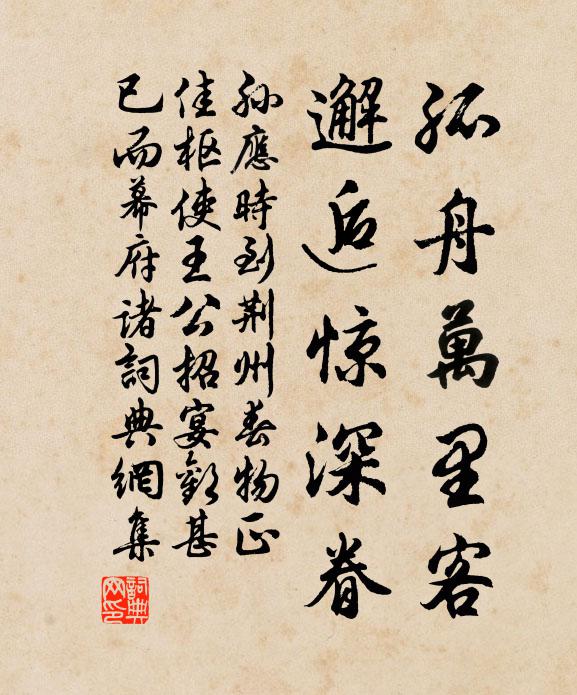 孤舟萬里客
邂逅惊深眷
孙應時到荆州春物正
佳枢使王公招宴歡甚
已而幕府诸詞典網集
詞典
网印